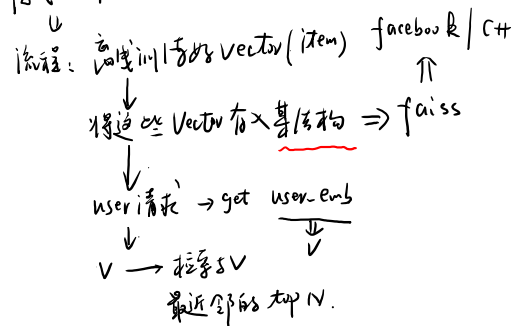 流程：离线训练好vector(item) facebook/C++
将这些Vector存入某结构 ⇒ faiss
user请求 → get user_emb
V
V → 检索与V
最近邻的 top N.